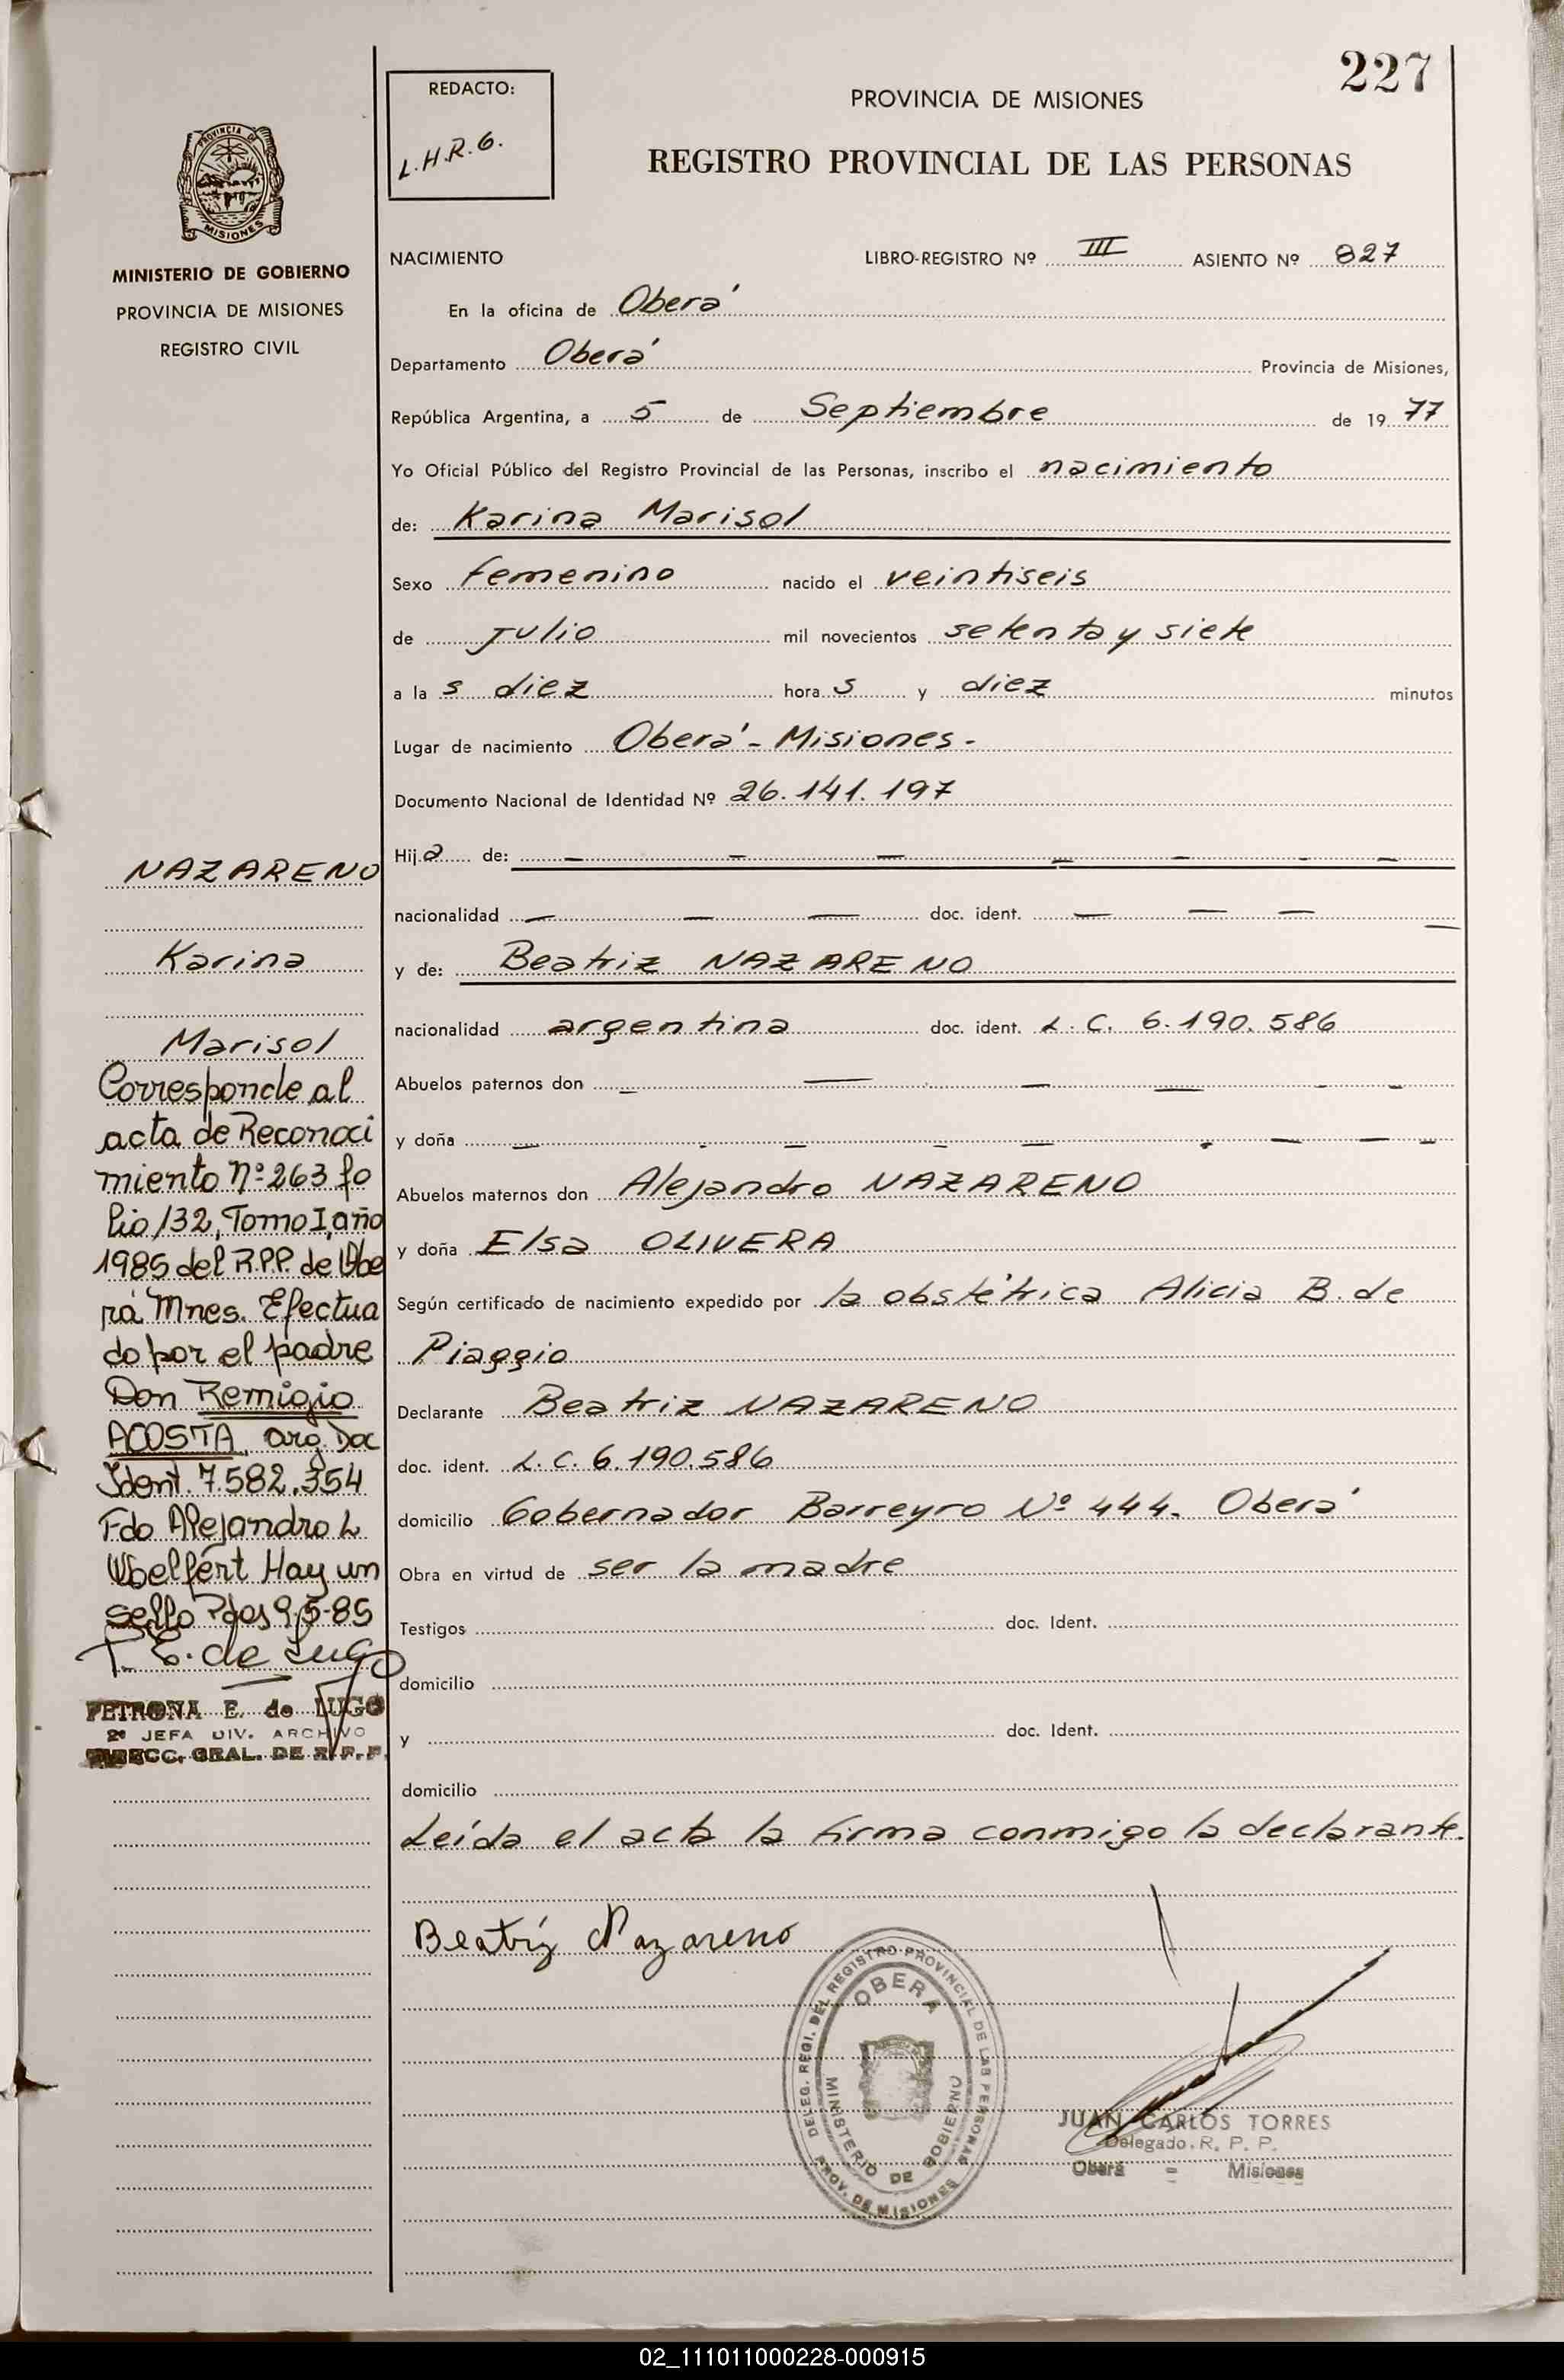 227
REDACTO:
L.H.R.G.
PROVINCIA DE MISIONES
REGISTRO PROVINCIAL DE LAS PERSONAS
PROVINCIA DE
MISIONES
MINISTERIO DE GOBIERNO
PROVINCIA DE MISIONES
REGISTRO CIVIL
NACIMIENTO LIBRO-REGISTRO Nº III ASIENTO Nº 827
En la oficina de Oberá
Departamento Oberá Provincia de Misiones,
República Argentina, a 5 de Septiembre de 1977
Yo Oficial Público del Registro Provincial de las Personas, inscribo el nacimiento
de: Karina Marisol
Sexo femenino nacido el veintiseis
de Julio mil novecientos setenta y siete
a las diez horas y diez minutos
Lugar de nacimiento Oberá - Misiones -
Documento Nacional de Identidad Nº 26.141.197
Hija de: — — — — — — —
nacionalidad — — — doc. ident. — — — —
y de: Beatriz NAZARENO
nacionalidad argentina doc. ident. L.C. 6.190.586
Abuelos paternos don — — — — — —
y doña — - — — — - — — —
Abuelos maternos don Alejandro NAZARENO
y doña Elsa OLIVERA
Según certificado de nacimiento expedido por la obstétrica Alicia B. de
Piaggio
Declarante Beatriz NAZARENO
doc. ident. L.C. 6.190.586
domicilio Gobernador Barreyro Nº 444. Oberá
Obra en virtud de ser la madre
Testigos doc. Ident.
domicilio
y doc. Ident.
domicilio
Leída el acta la firma conmigo la declarante.
Beatríz Nazareno
NAZARENO
Karina
Marisol
Corresponde al
acta de Reconoci
miento Nº 263 fo
lio 132, Tomo I, año
1985 del R.P.P. de Obe
rá Mnes. Efectua
do por el padre
Don Remigio
ACOSTA, arg. Doc
Ident. 7.582.354
Fdo Alejandro L
Woelfert Hay un
sello Pdas 9-5-85
P. E. de Lugo
PETRONA E. de LUGO
2º JEFA DIV. ARCHIVO
DIRECC. GRAL. DE R.P.P.
DELEG. REGI. DEL REGISTRO PROVINCIAL DE LAS PERSONAS
OBERA
MINISTERIO DE GOBIERNO
PROV. DE MISIONES
JUAN CARLOS TORRES
Delegado. R. P. P.
Oberá - Misiones
02_111011000228-000915